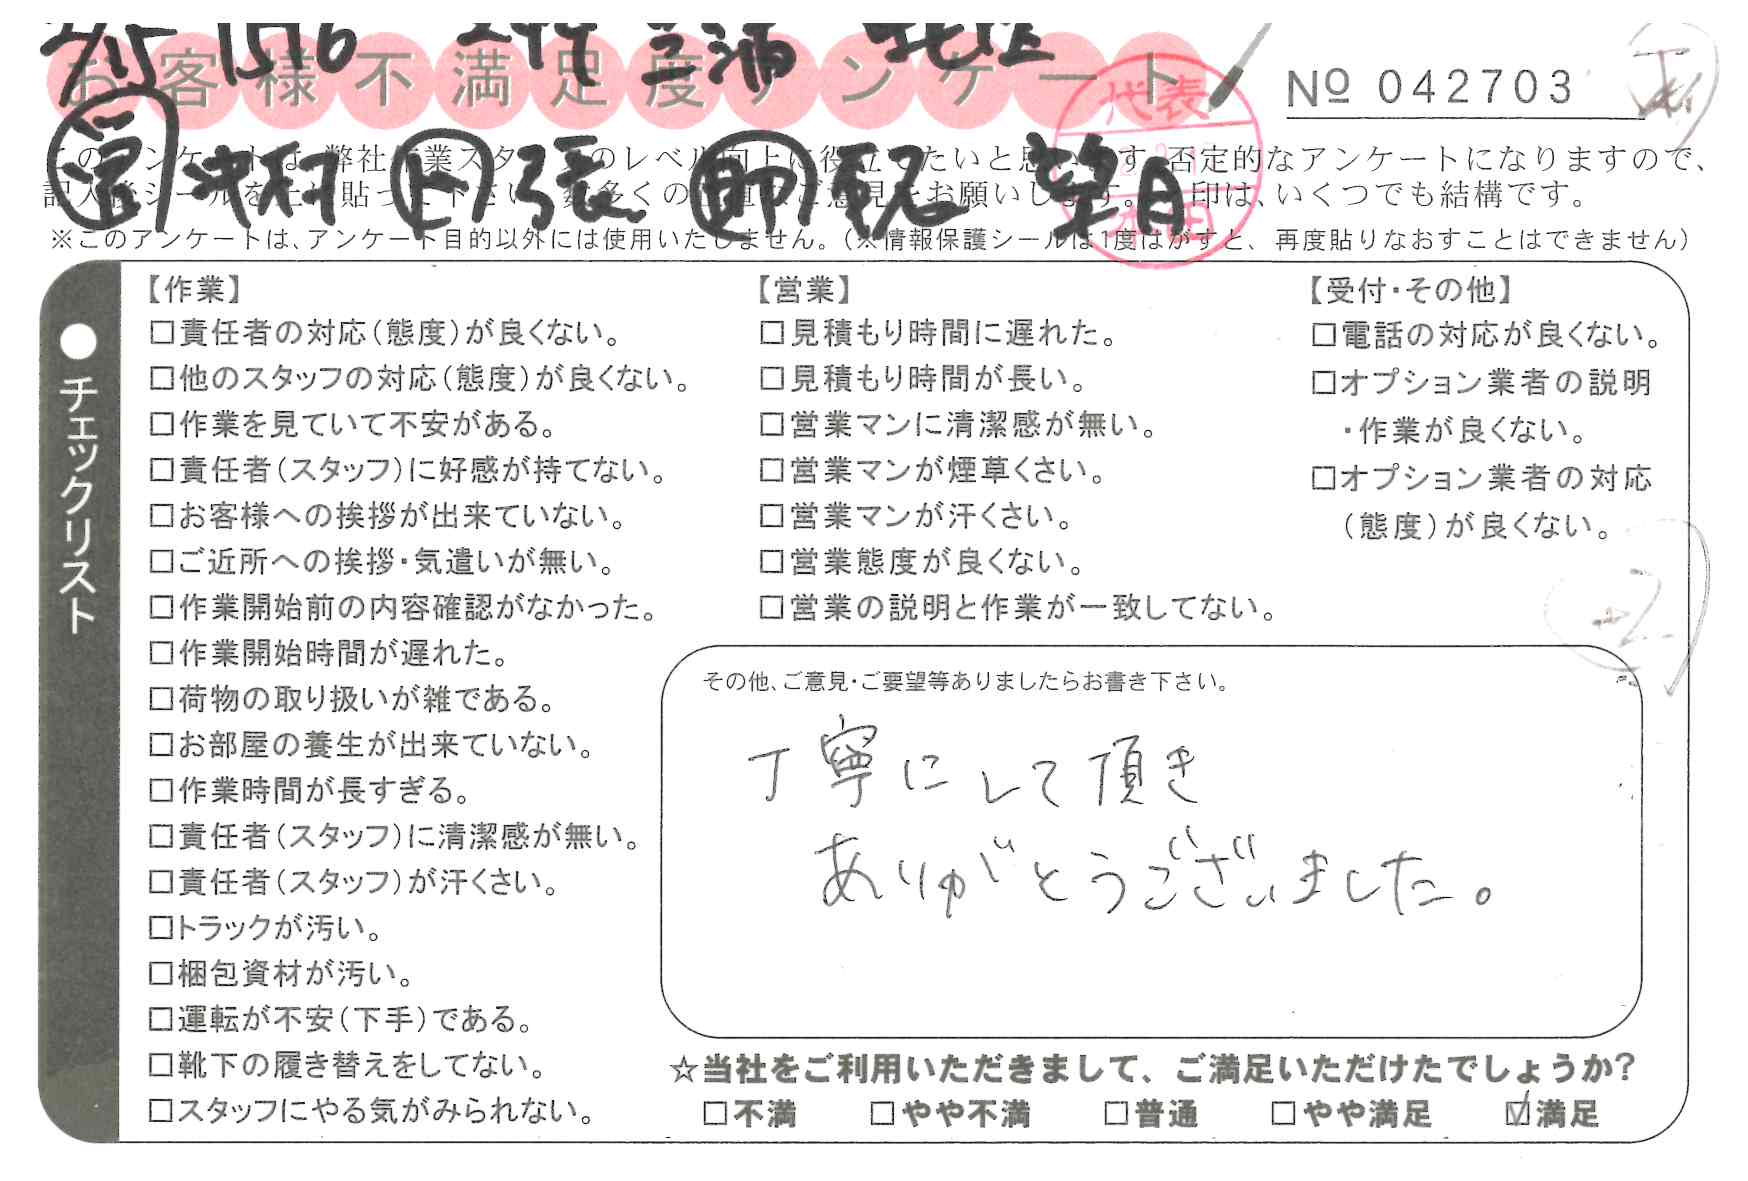 お客様不満足度アンケート
№ 042703
代表
このアンケートは、弊社作業スタッフのレベル向上に役立てたいと思います。否定的なアンケートになりますので、
記入後シールを上に貼って下さい。数多くの正直なご意見をお願いします。 印は、いくつでも結構です。
※このアンケートは、アンケート目的以外には使用いたしません。(※情報保護シールは1度はがすと、再度貼りなおすことはできません)
津村 張 望月
●チェックリスト
【作業】
□責任者の対応(態度)が良くない。
□他のスタッフの対応(態度)が良くない。
□作業を見ていて不安がある。
□責任者(スタッフ)に好感が持てない。
□お客様への挨拶が出来ていない。
□ご近所への挨拶・気遣いが無い。
□作業開始前の内容確認がなかった。
□作業開始時間が遅れた。
□荷物の取り扱いが雑である。
□お部屋の養生が出来ていない。
□作業時間が長すぎる。
□責任者(スタッフ)に清潔感が無い。
□責任者(スタッフ)が汗くさい。
□トラックが汚い。
□梱包資材が汚い。
□運転が不安(下手)である。
□靴下の履き替えをしてない。
□スタッフにやる気がみられない。
【営業】
□見積もり時間に遅れた。
□見積もり時間が長い。
□営業マンに清潔感が無い。
□営業マンが煙草くさい。
□営業マンが汗くさい。
□営業態度が良くない。
□営業の説明と作業が一致してない。
【受付・その他】
□電話の対応が良くない。
□オプション業者の説明
・作業が良くない。
□オプション業者の対応
(態度)が良くない。
その他、ご意見・ご要望等ありましたらお書き下さい。
丁寧にして頂き
ありがとうございました。
☆当社をご利用いただきまして、ご満足いただけたでしょうか?
□不満 □やや不満 □普通 □やや満足 ☑満足